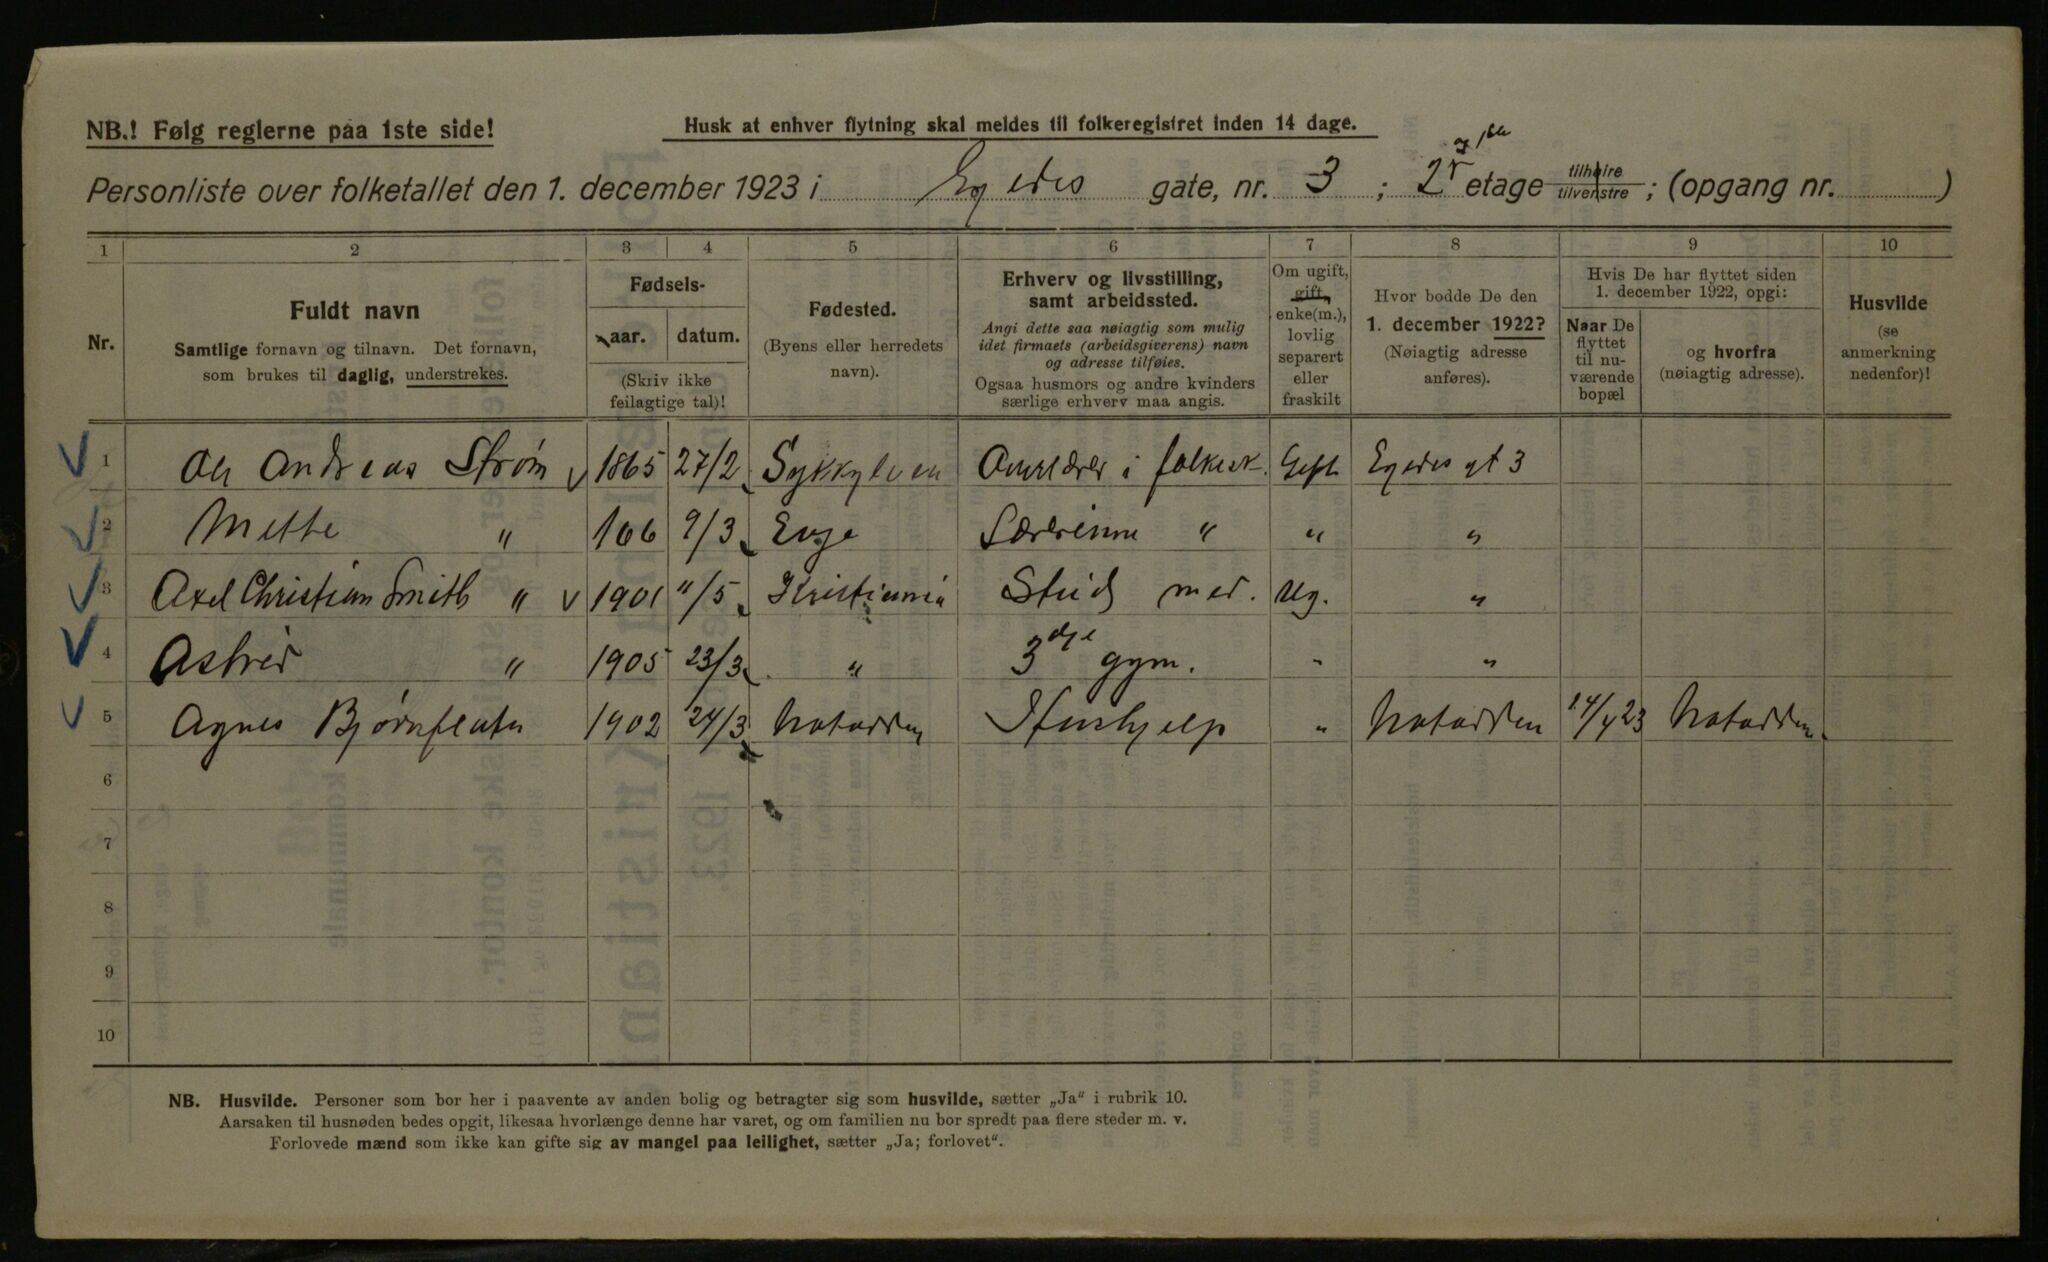 NB.! Følg reglerne paa 1ste side!
Husk at enhver flytning skal meldes til folkeregistret inden 14 dage.
Personliste over folketallet den 1. december 1923 i Egedes gate, nr. 3 ; 2 etage tilhøire tilvenstre ; (opgang nr. )
1 2 3 4 5 6 7 8 9 10
Nr.
Fuldt navn
Samtlige fornavn og tilnavn. Det fornavn,
som brukes til daglig, understrekes.
Fødsels-
aar. datum.
(Skriv ikke
feilagtige tal)!
Fødested.
(Byens eller herredets
navn).
Erhverv og livsstilling,
samt arbeidssted.
Angi dette saa nøiagtig som mulig
idet firmaets (arbeidsgiverens) navn
og adresse tilføies.
Ogsaa husmors og andre kvinders
særlige erhverv maa angis.
Om ugift,
gift,
enke(m.),
lovlig
separert
eller
fraskilt
Hvor bodde De den
1. december 1922?
(Nøiagtig adresse
anføres).
Hvis De har flyttet siden
1. december 1922, opgi:
Naar De
flyttet
til nu-
værende
bopæl
og hvorfra
(nøiagtig adresse).
Husvilde
(se
anmerkning
nedenfor)!
1 Ole Andreas Strøm 1865 27/2 Sykkylven Overlærer i folkesk. Gift Egedes gt 3
2 Mette " 166 9/3 Evje Lærerinne " " "
3 Axel Christian Smith " 1901 11/5 Kristiania Stud med. Ug. "
4 Astrid " 1905 23/3 " 3dje gym. " "
5 Agnes Bjørnflaten 1902 24/3 Notodden Hushjelp " Notodden 14/4 23 Notodden
6
7
8
9
10
NB. Husvilde. Personer som bor her i paavente av anden bolig og betragter sig som husvilde, sætter „Ja“ i rubrik 10.
Aarsaken til husnøden bedes opgit, likesaa hvorlænge denne har varet, og om familien nu bor spredt paa flere steder m. v.
Forlovede mænd som ikke kan gifte sig av mangel paa leilighet, sætter „Ja; forlovet“.